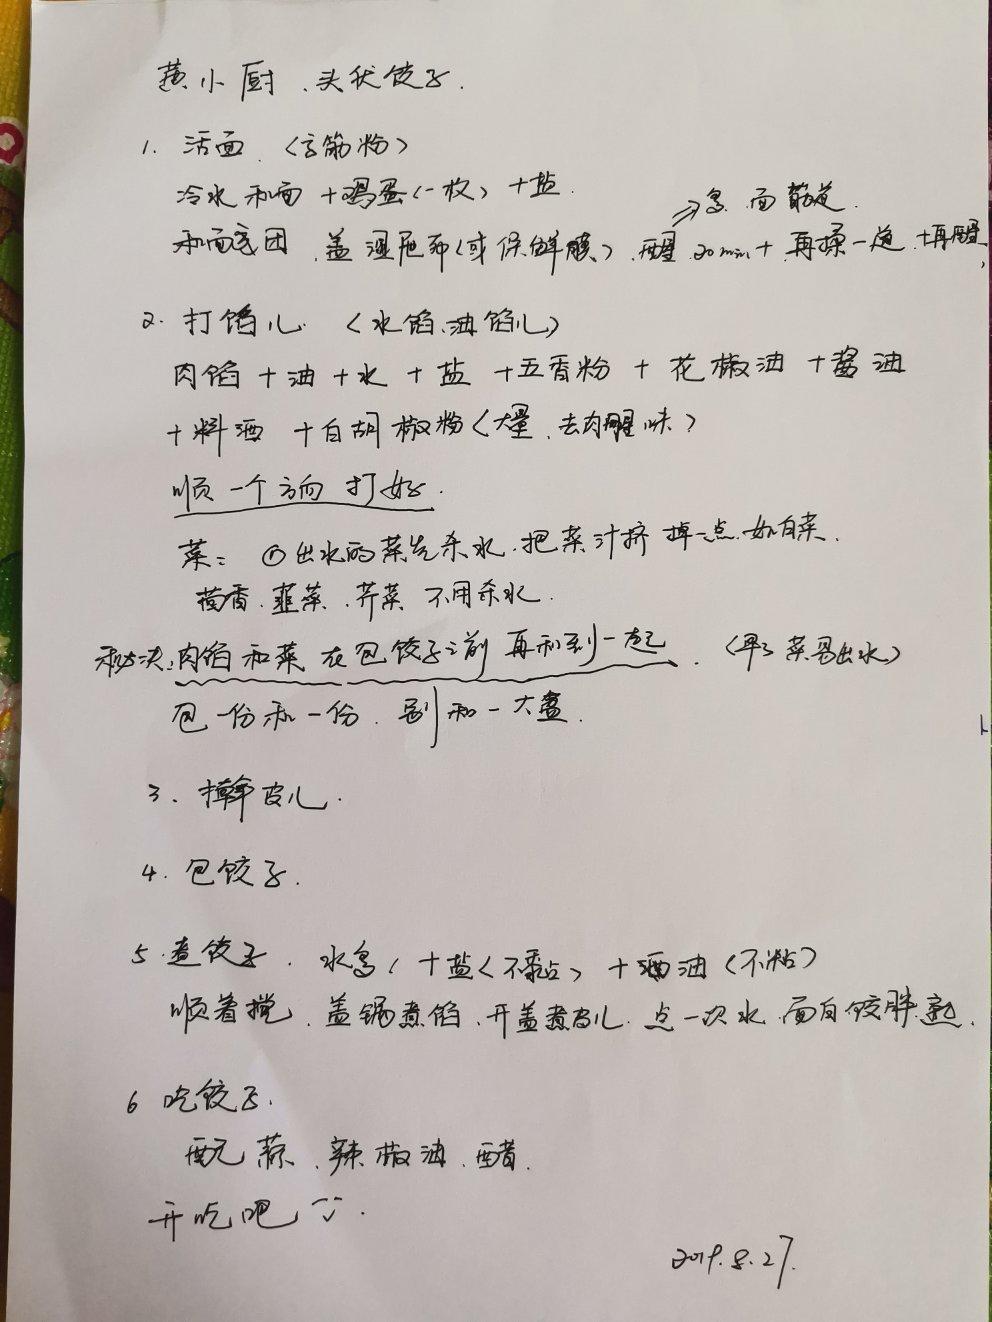 黄小厨、头伏饺子.
1. 活面.(高筋粉)
冷水和面+鸡蛋(一枚)+盐.
⇒多、面筋道.
和面成团、盖湿屉布(或保鲜膜)、醒20min+再揉一遍.+再醒,
2. 打馅儿.(水馅、油馅儿)
肉馅+油+水+盐+五香粉+花椒油+酱油
+料酒+白胡椒粉(大量、去肉腥味)
顺一个方向打好.
菜:①出水的菜先杀水.把菜汁挤掉一点.如白菜.
茴香.韭菜.芹菜不用杀水.
秘决:肉馅和菜在包饺子之前再和到一起.(早了菜易出水)
包一份和一份.别和一大盆.
3. 擀皮儿.
4. 包饺子.
5. 煮饺子.水多,+盐(不黏)+油(不粘)
顺着搅、盖锅煮馅、开盖煮皮儿.点一次水.面白饺胖熟.
6 吃饺子.
配蒜、辣椒油、醋.
开吃吧
2019.8.27.